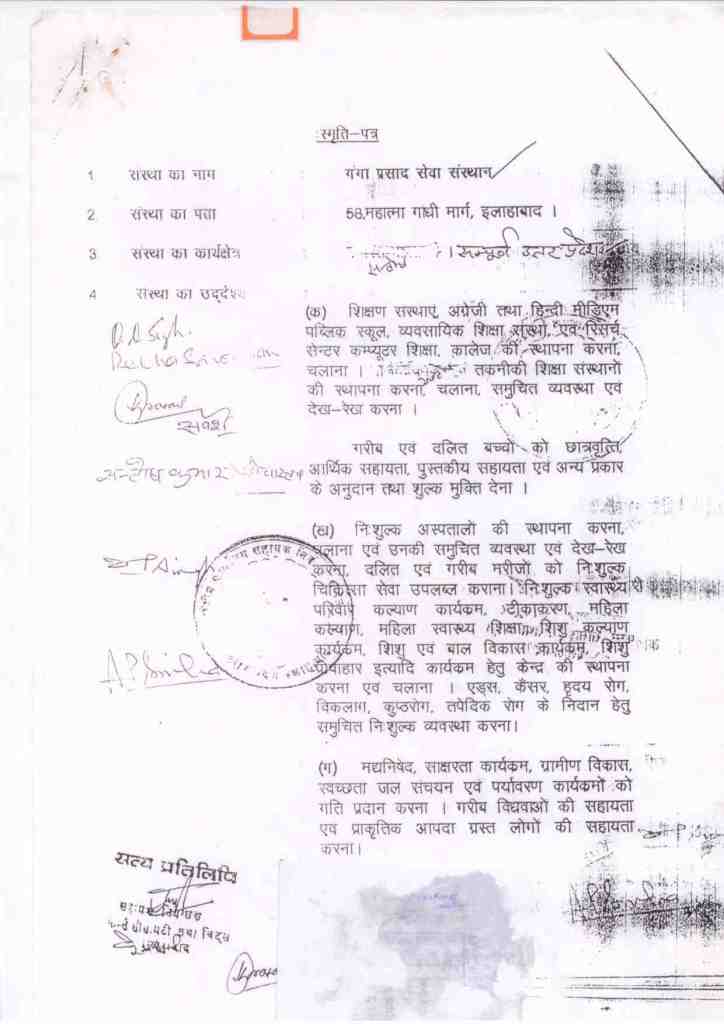 स्मृति–पत्र
1 संस्था का नाम गंगा प्रसाद सेवा संस्थान
2. संस्था का पता 58,महात्मा गांधी मार्ग, इलाहाबाद ।
3. संस्था का कार्यक्षेत्र । सम्पूर्ण उत्तर प्रदेश
4 संस्था का उद्देश्य
(क) शिक्षण संस्थाएं, अग्रेजी तथा हिन्दी मीडिएम
पब्लिक स्कूल, व्यवसायिक शिक्षा संस्था, एवं रिसर्च
सेन्टर कम्प्यूटर शिक्षा, कालेज की स्थापना करना,
चलाना । तकनीकी शिक्षा संस्थानों
की स्थापना करना, चलाना, समुचित व्यवस्था एवं
देख–रेख करना ।
गरीब एवं दलित बच्चों को छात्रवृत्ति,
आर्थिक सहायता, पुस्तकीय सहायता एवं अन्य प्रकार
के अनुदान तथा शुल्क मुक्ति देना ।
(ख) निःशुल्क अस्पतालो की स्थापना करना,
चलाना एवं उनकी समुचित व्यवस्था एवं देख–रेख
करना, दलित एवं गरीब मरीजों को निःशुल्क
चिकित्सा सेवा उपलब्ल कराना। निःशुल्क स्वास्थ्य
परिवार कल्याण कार्यकम, टीकाकरण, महिला
कल्याण, महिला स्वास्थ्य शिक्षा, शिशु कल्याण
कार्यकम, शिशु एवं बाल विकास कार्यकम, शिशु
इत्यादि कार्यकम हेतु केन्द्र की स्थापना
करना एवं चलाना । एड्स, कैंसर, हृदय रोग,
विकलाग, कुष्ठरोग, तपेदिक रोग के निदान हेतु
समुचित निःशुल्क व्यवस्था करना।
(ग) मद्यनिषेद, साक्षरता कार्यकम, ग्रामीण विकास,
स्वच्छता जल संचयन एवं पर्यावरण कार्यकमों को
गति प्रदान करना । गरीब विधवाओं की सहायता
एवं प्राकृतिक आपदा ग्रस्त लोगों की सहायता
करना।
सत्य प्रतिलिपि